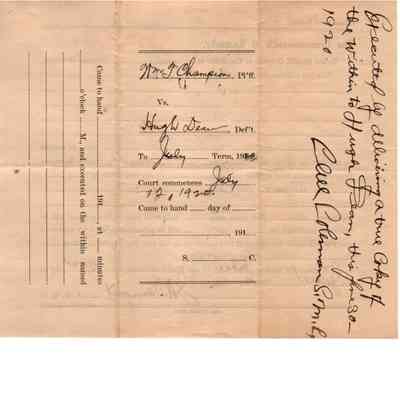 Wm T Champion Pl'ff.
Vs.
Hugh Dean Def't.
To July Term, 19
Court commences July
12, 1920.
Came to hand day of
, 191
S. C.
Executed by delivering a true Copy of
the within to Hugh Dean, this June 30
1920
Coleman S. M. C.
Came to hand 191 , at minutes
o'clock M., and executed on the within named